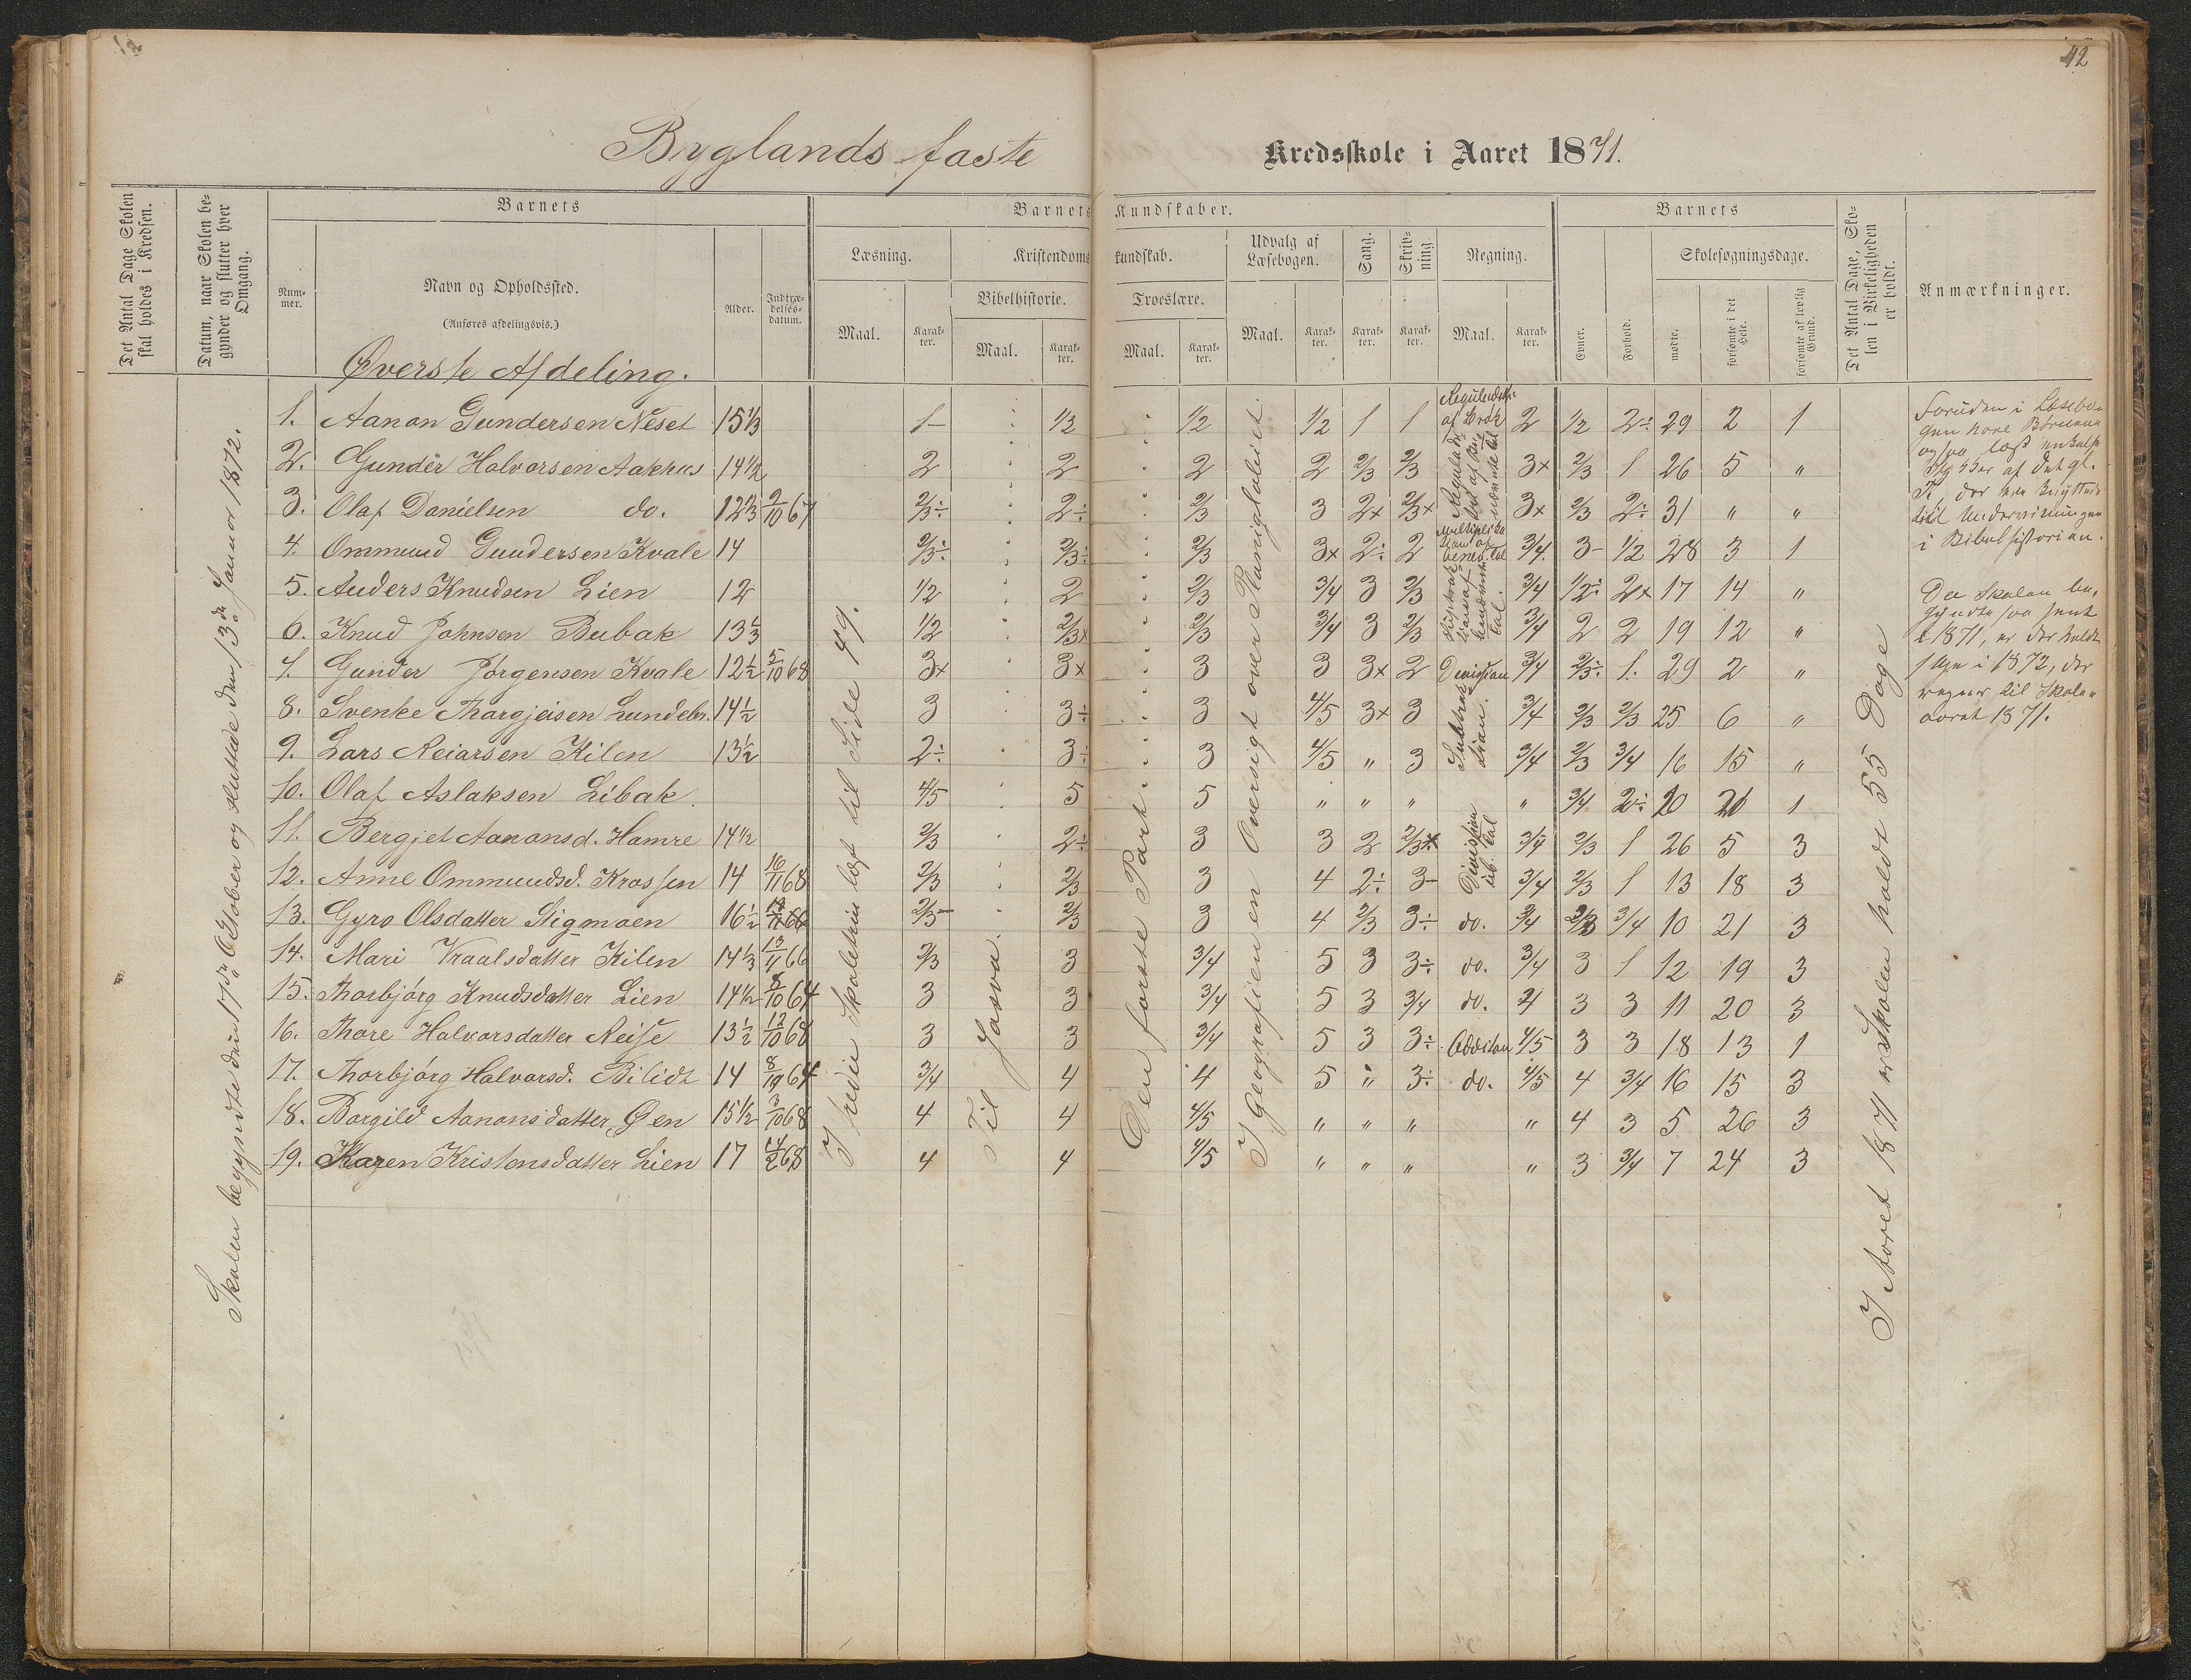 42
Byglands faste Kredsskole i Aaret 1871.
Det Antal Dage Skolen skal holdes i Kredsen.
Datum, naar Skolen begynder og slutter hver Omgang.
Barnets
Barnets Kundskaber.
Barnets
Det Antal Dage, Skolen i Virkeligheden er holdt.
Anmærkninger.
Nummer.
Navn og Opholdssted.
(Anføres afdelingsvis.)
Alder.
Indtrædelsesdatum.
Læsning.
Kristendomskundskab.
Udvalg af Læsebogen.
Sang.
Skrivning.
Regning.
Evner.
Forhold.
Skolesøgningsdage.
Bibelhistorie.
Troeslære.
Maal. Karakter. Maal. Karakter. Maal. Karakter. Maal. Karakter. Karakter. Karakter. Maal. Karakter.
mødte. forsømte i det Hele. forsømte af lovlig Grund.
Øverste Afdeling.
1. Aanon Gundersen Neset 15 1/3 1- 1/2 1/2 1/2 1 1 2 1/2 2÷ 29 2 1
2. Gunder Halvorsen Aakhus 14 1/2 2 2 2 2 2/3 2/3 3x 2/3 1 26 5 "
3. Olaf Danielsen do. 12 1/3 9/10 67 2/3÷ 2÷ 2/3 3 2x 2/3x 3x 2/3 2÷ 31 " "
4. Ommund Gundersen Kvale 14 2/3÷ 2/3÷ 2/3 3x 2÷ 2 3/4 3- 1/2 28 3 1
5. Anders Knudsen Lien 12 1/2 2 2/3 3/4 3 2/3 3/4 1/2÷ 2x 17 14 "
6. Knud Johnsen Bubak 13 1/3 1/2 2/3x 2/3 3/4 3 2/3 3/4 2 2 19 12 "
7. Gunder Jørgensen Kvale 12 1/2 5/10 68 3x 3x 3 3 3x 2 Division 3/4 2/3÷ 1. 29 2 "
8. Svenke Thargjeisen Lundebr. 14 1/2 3 3÷ 3 4/5 3x 3 3/4 2/3 2/3 25 6 "
9. Lars Reiarsen Kilen 13 1/2 2÷ 3÷ 3 4/5 " 3 3/4 2/3 3/4 16 15 "
10. Olaf Aslaksen Libak. 4/5 5 5 " " " " 3/4 2÷ 20 1
11. Bergjet Aanonsd. Hamre 14 1/2 2/3 2÷ 3 3 2 3/4 2/3 1 26 5 3
12. Anne Ommundsd. Krossen 14 16/11 68 2/3 2/3 3 4 2÷ 3- 3/4 2/3 1 13 18 3
13. Gyro Olsdatter Stigmoen 16 1/2 2/3- 2/3 3 4 2/3 3÷ do. 3/4 3/4 10 21 3
14. Mari Knaalsdatter Kilen 14 1/3 13/11 66 2/3 3 3/4 5 3 3÷ do. 3/4 3 1 12 19 3
15. Thorbjørg Knudsdatter Lien 14 1/2 8/10 64 3 3 3/4 5 3 3/4 do. 4 3 3 11 20 3
16. Thore Halvorsdatter Neise 13 1/2 12/10 68 3 3 3/4 5 3 3÷ Addition 4/5 3 3 18 13 1
17. Thorbjørg Halvorsd. Bilidt 14 8/10 64 3/4 4 4 5 " 3÷ do. 4/5 4 3/4 16 15 3
18. Borgild Aanonsdatter Øen 15 1/2 3/10 68 4 4 4/5 " " " " 4 3 5 26 3
19. Karen Kristensdatter Lien 17 68 4 4 4/5 " " " " 3 3/4 7 24 3
Skolen begyndte den 17de Oktober og sluttede den 13de Januar 1872.
I tredie Skoletrin læst til Side 49.
Til Josva.
Den første Part
I Geografien en Oversigt over Planigloberiet.
Subtraktion.
Division
I Aaret 1871 er Skolen holdt 55 Dage
Foruden i Læsebogen have Børnene
ogsaa læst enkelte
af det gl.
T., der ere knyttede
til Undervisningen
i Bibelhistorien.
Da Skolen begyndte saa sent
i 1871, er der holdt
i 1872, der
regnes til Skoleaaret 1871.